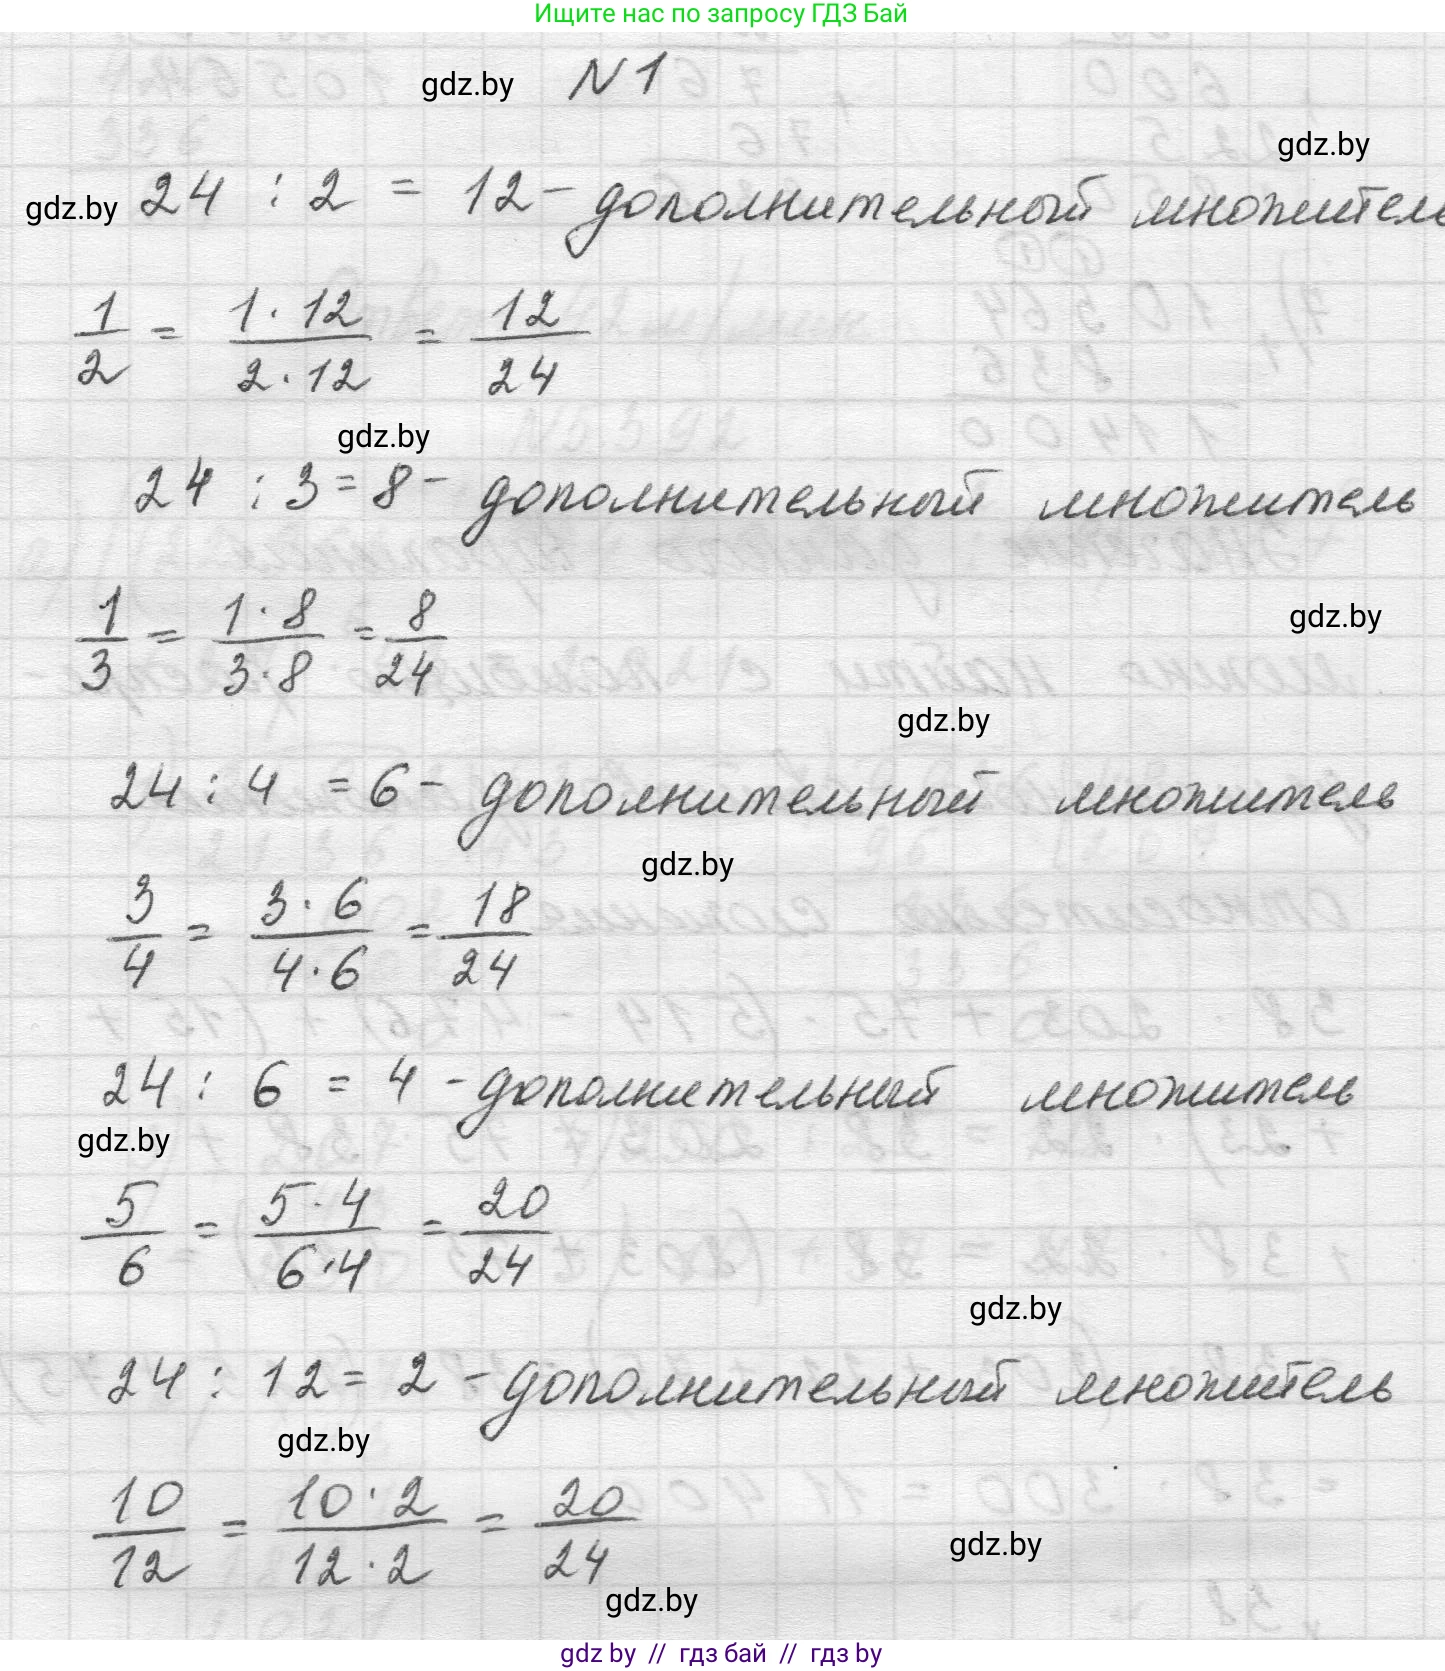 Ищите нас по запросу ГДЗ Бай
gdz.by N 1
gdz.by
gdz.by 24 : 2 = 12 - дополнительный множитель
1/2 = 1·12/2·12 = 12/24
gdz.by
24 : 3 = 8 - дополнительный множитель
1/3 = 1·8/3·8 = 8/24
gdz.by
gdz.by
24 : 4 = 6 - дополнительный множитель
gdz.by
3/4 = 3·6/4·6 = 18/24
24 : 6 = 4 - дополнительный множитель
gdz.by
5/6 = 5·4/6·4 = 20/24
gdz.by
24 : 12 = 2 - дополнительный множитель
gdz.by
10/12 = 10·2/12·2 = 20/24
gdz.by
gdz.by
gdz by // гдз бай // гдз by